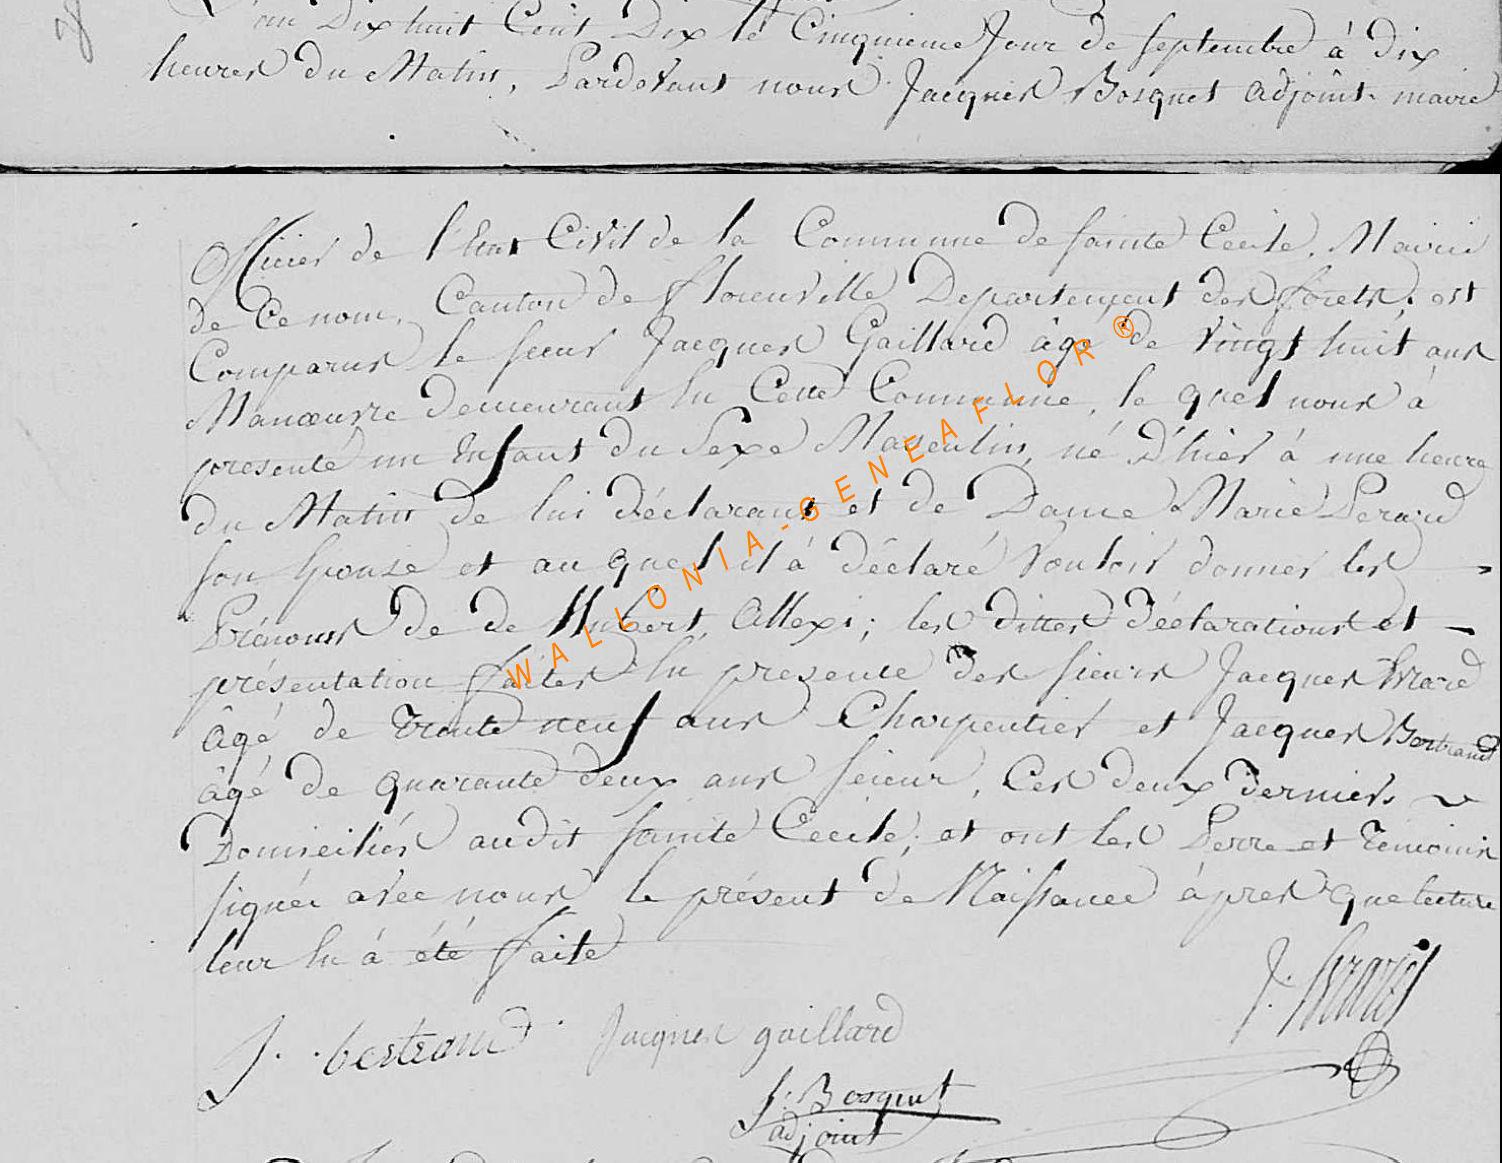 L'an Dix huit Cent Dix le Cinquieme Jour de septembre à dix
heures du Matin, Pardevant nous Jacques Bosquet adjoint maire
Officier de l'Etat Civil de la Commune de sainte Cecile, Mairie
de Ce nom, Canton de florenville Departement des forets, est
Comparus le sieur Jacques Gaillard âgé de vingt huit ans
Manœuvre demeurant En Cette Commune, le quel nous à
presenté un Enfant du Sexe Masculin, né D'hier à une heure
du Matin de lui déclarant et de Dame Marie Perard
son Epouse et au quel il à déclaré Vouloir donner les
Prénoms de de Hubert, Allexi; les dittes déclarations et
présentation faites En presence des sieurs Jacques Evrard
âgé de trente neuf ans Charpentier et Jacques Bertrand
âgé de quarante deux ans scieur, Ces deux derniers
Domiciliés audit sainte Cecile; et ont les Perre et témoins
signés avec nous le présent de Naissance àpres que lecture
leur En à été faite
J. Evrard
J. bertrand
Jacques gaillard
J. Bosquet
adjoint
WALLONIA-GENEAFLOR®